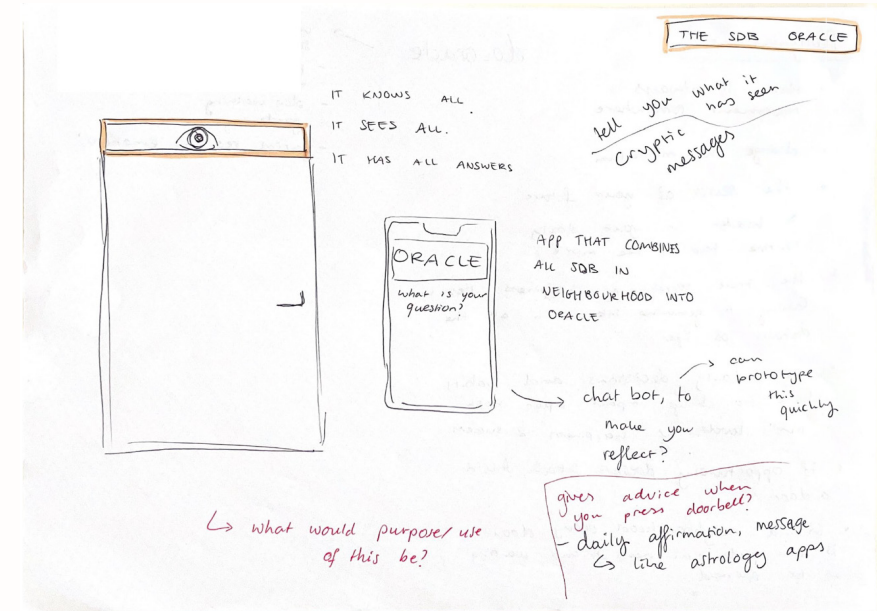 THE SDB ORACLE
IT KNOWS ALL.
IT SEES ALL.
IT HAS ALL ANSWERS
tell you what it
has seen
cryptic
messages
ORACLE
what is your
question?
APP THAT COMBINES
ALL SDB IN
NEIGHBOURHOOD INTO
ORACLE
chat bot, to
make you
reflect?
can
prototype
this
quickly
what would purpose/use
of this be?
gives advice when
you press doorbell?
- daily affirmation, message
like astrology apps